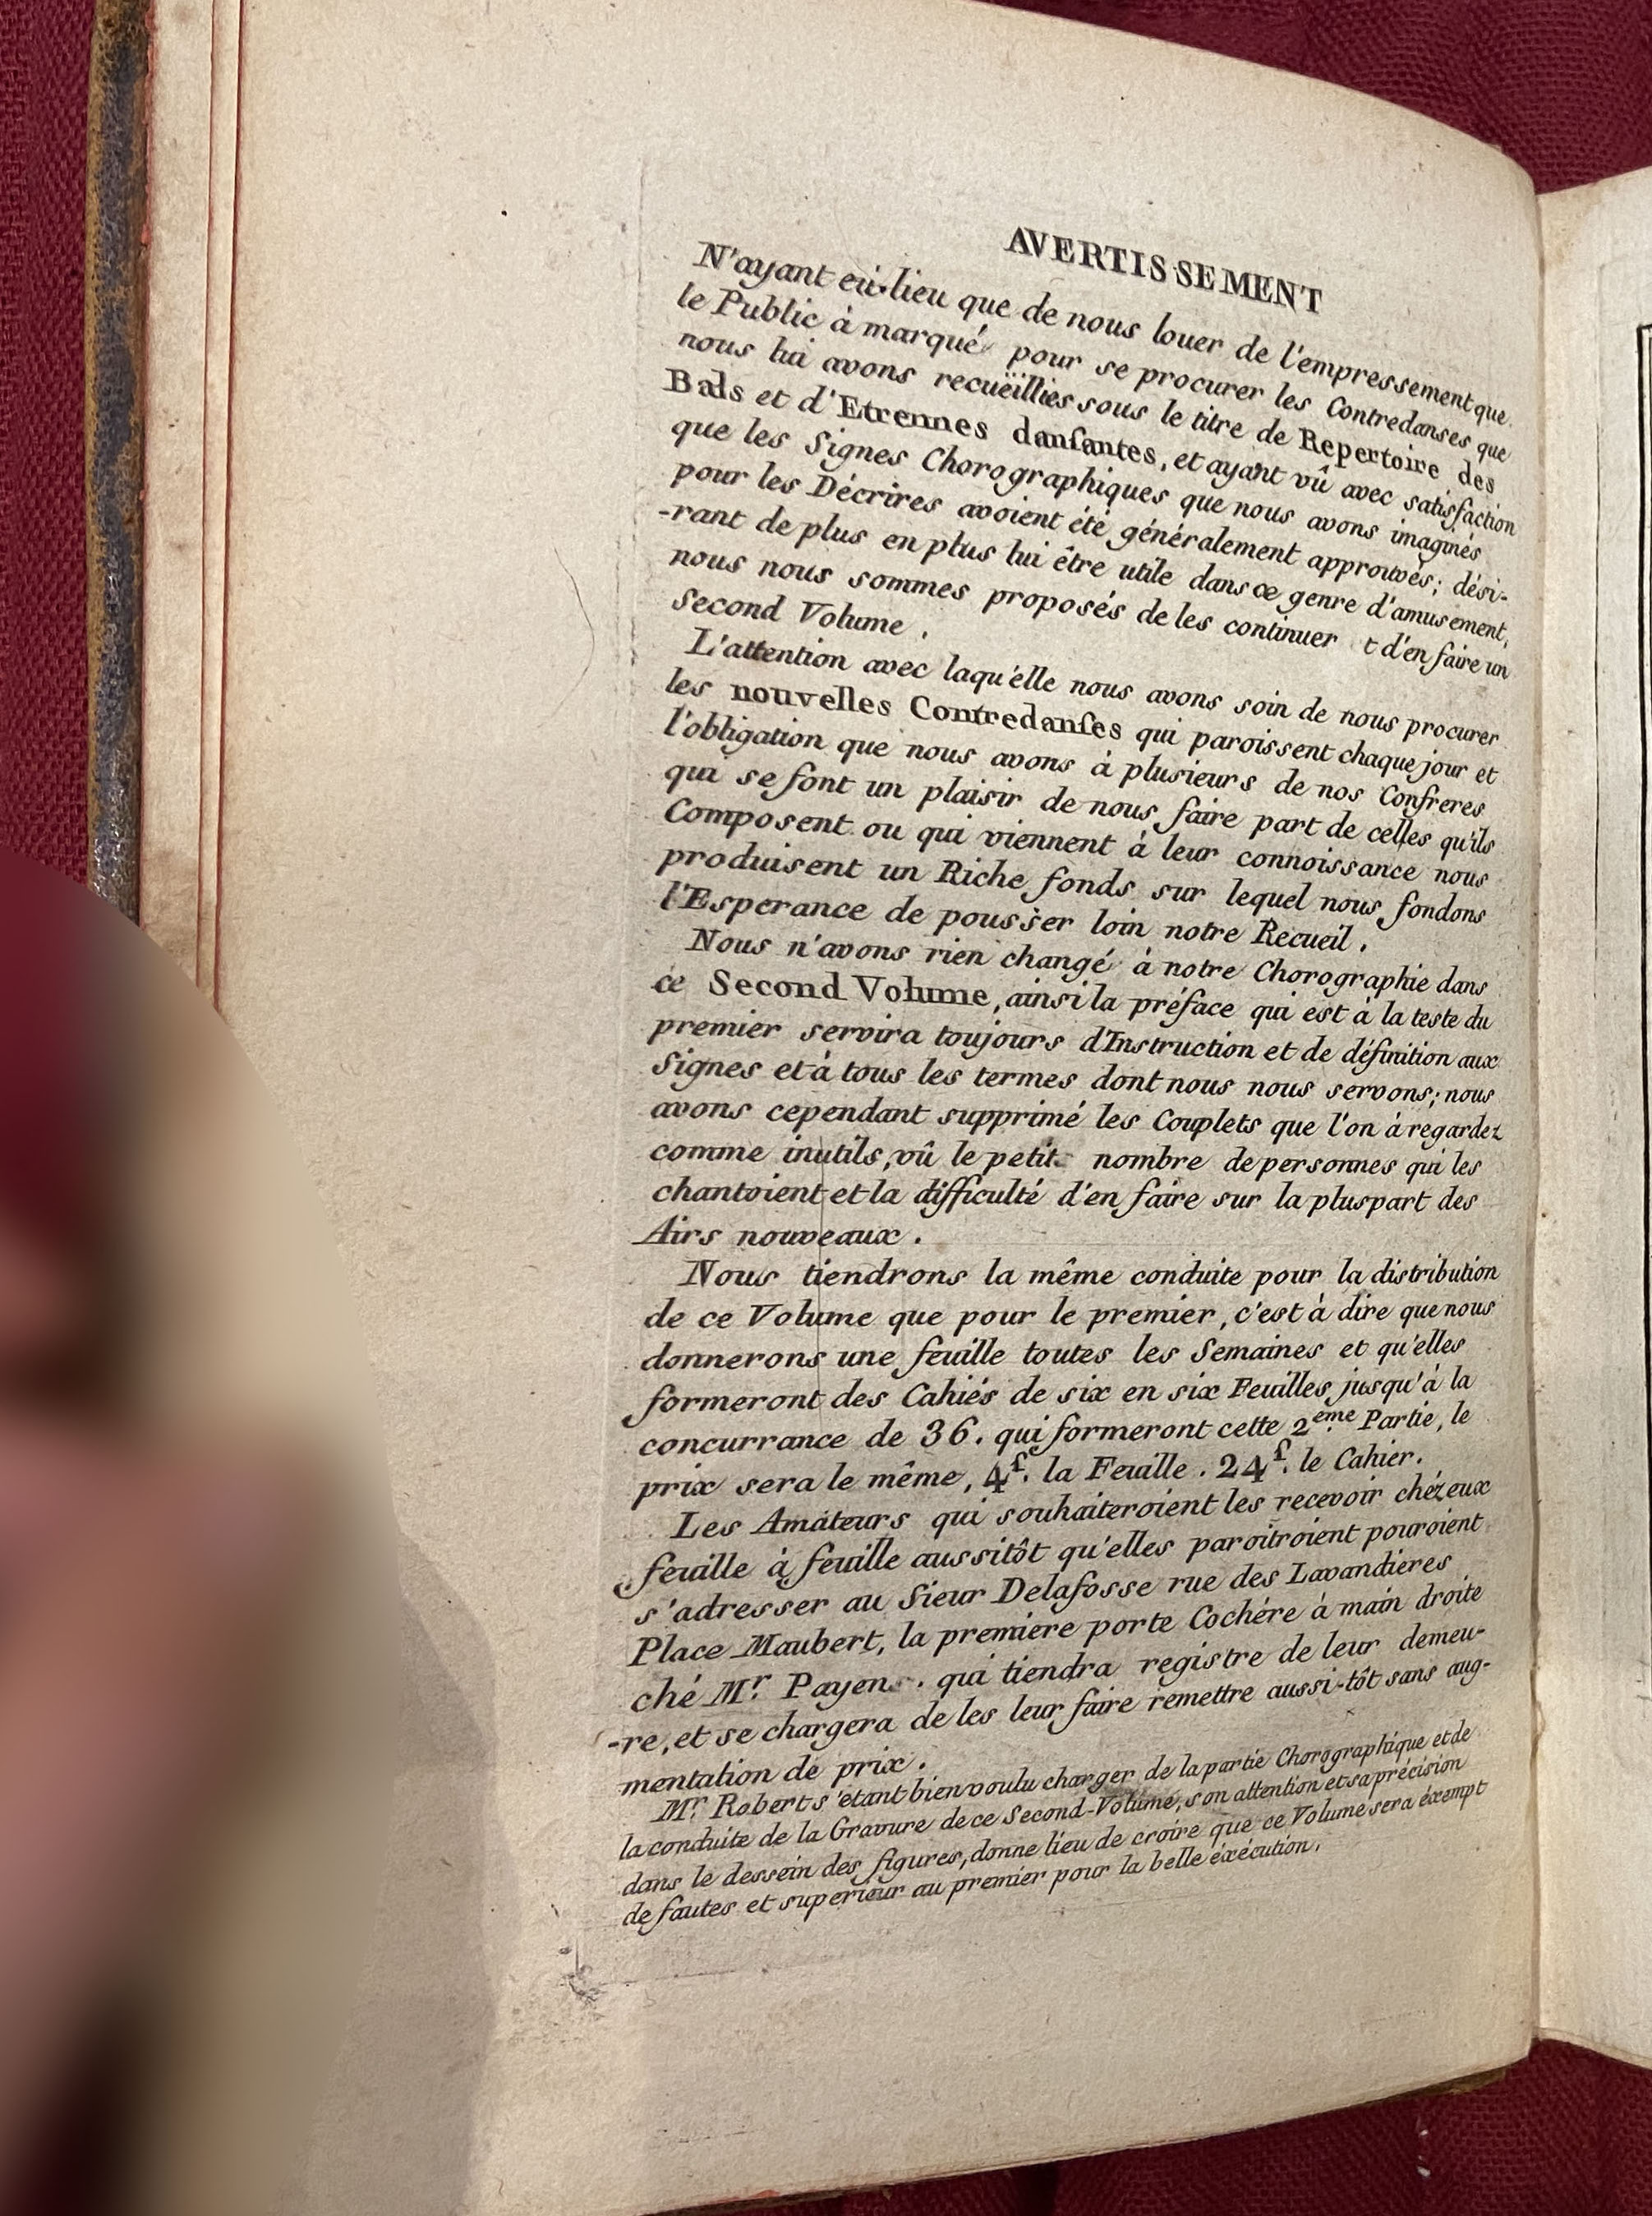 AVERTISSEMENT
N'ayant eû lieu que de nous louer de l'empressement que
le Public à marqué pour se procurer les Contredanses que
nous lui avons recuëillies sous le titre de Repertoire des
Bals et d'Etrennes danſantes, et ayant vû avec satisfaction
que les Signes Chorographiques que nous avons imaginés
pour les Décrires avoient été généralement approuvés; dési-
-rant de plus en plus lui être utile dans ce genre d'amusement,
nous nous sommes proposés de les continuer t d'en faire un
Second Volume.
L'attention avec laqu'elle nous avons soin de nous procurer
les nouvelles Contredanſes qui paroissent chaque jour et
l'obligation que nous avons à plusieurs de nos Confreres
qui se font un plaisir de nous faire part de celles qu'ils
Composent ou qui viennent à leur connoissance nous
produisent un Riche fonds sur lequel nous fondons
l'Esperance de pousser loin notre Recueil.
Nous n'avons rien changé à notre Chorographie dans
ce Second Volume, ainsi la préface qui est à la teste du
premier servira toujours d'Instruction et de définition aux
Signes et à tous les termes dont nous nous servons; nous
avons cependant supprimé les Couplets que l'on à regardez
comme inutils, vû le petit nombre de personnes qui les
chantoient et la difficulté d'en faire sur la pluspart des
Airs nouveaux.
Nous tiendrons la même conduite pour la distribution
de ce Volume que pour le premier, c'est à dire que nous
donnerons une feuille toutes les Semaines et qu'elles
formeront des Cahiés de six en six Feuilles jusqu'à la
concurrance de 36. qui formeront cette 2.eme Partie, le
prix sera le même, 4ſ. la Feuille. 24ſ. le Cahier.
Les Amateurs qui souhaiteroient les recevoir chéz eux
feuille à feuille aussitôt qu'elles paroitroient pouroient
s'adresser au Sieur Delafosse rue des Lavandieres
Place Maubert, la premiere porte Cochére à main droite
ché Mr. Payen. qui tiendra registre de leur demeu-
-re, et se chargera de les leur faire remettre aussi-tôt sans aug-
mentation de prix.
Mr. Robert s'étant bien voulu charger de la partie Chorographique et de
la conduite de la Gravure de ce Second-Volume, son attention et sa précision
dans le dessein des figures, donne lieu de croire que ce Volume sera éxempt
de fautes et superieur au premier pour la belle éxécution.